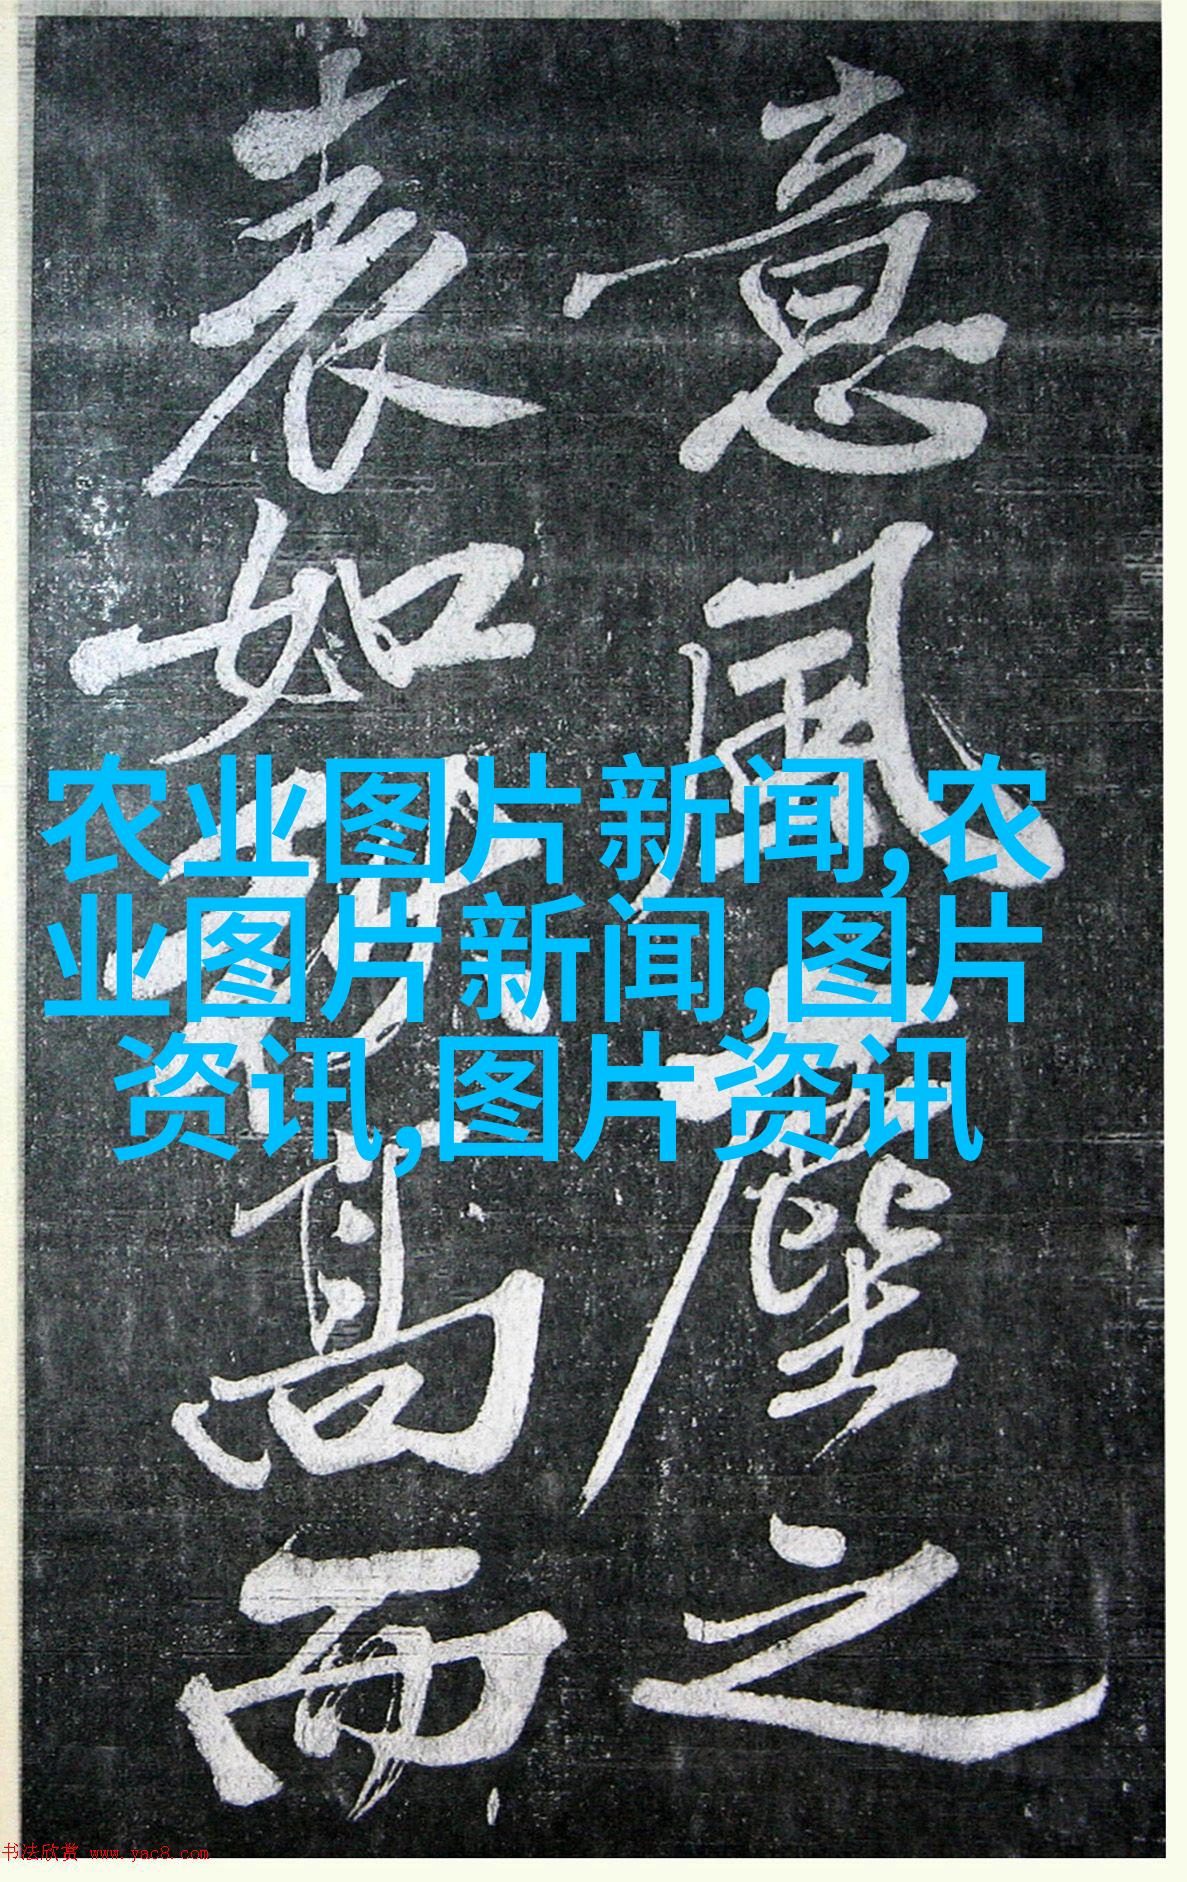 意風塵之
表如高而
农业图片新闻,农
业图片新闻,图片
资讯,图片资讯
书法欣赏 www.yac8.com